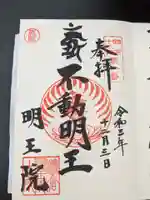 奉拝
令和三年
十二月三日
不動明王
明王院